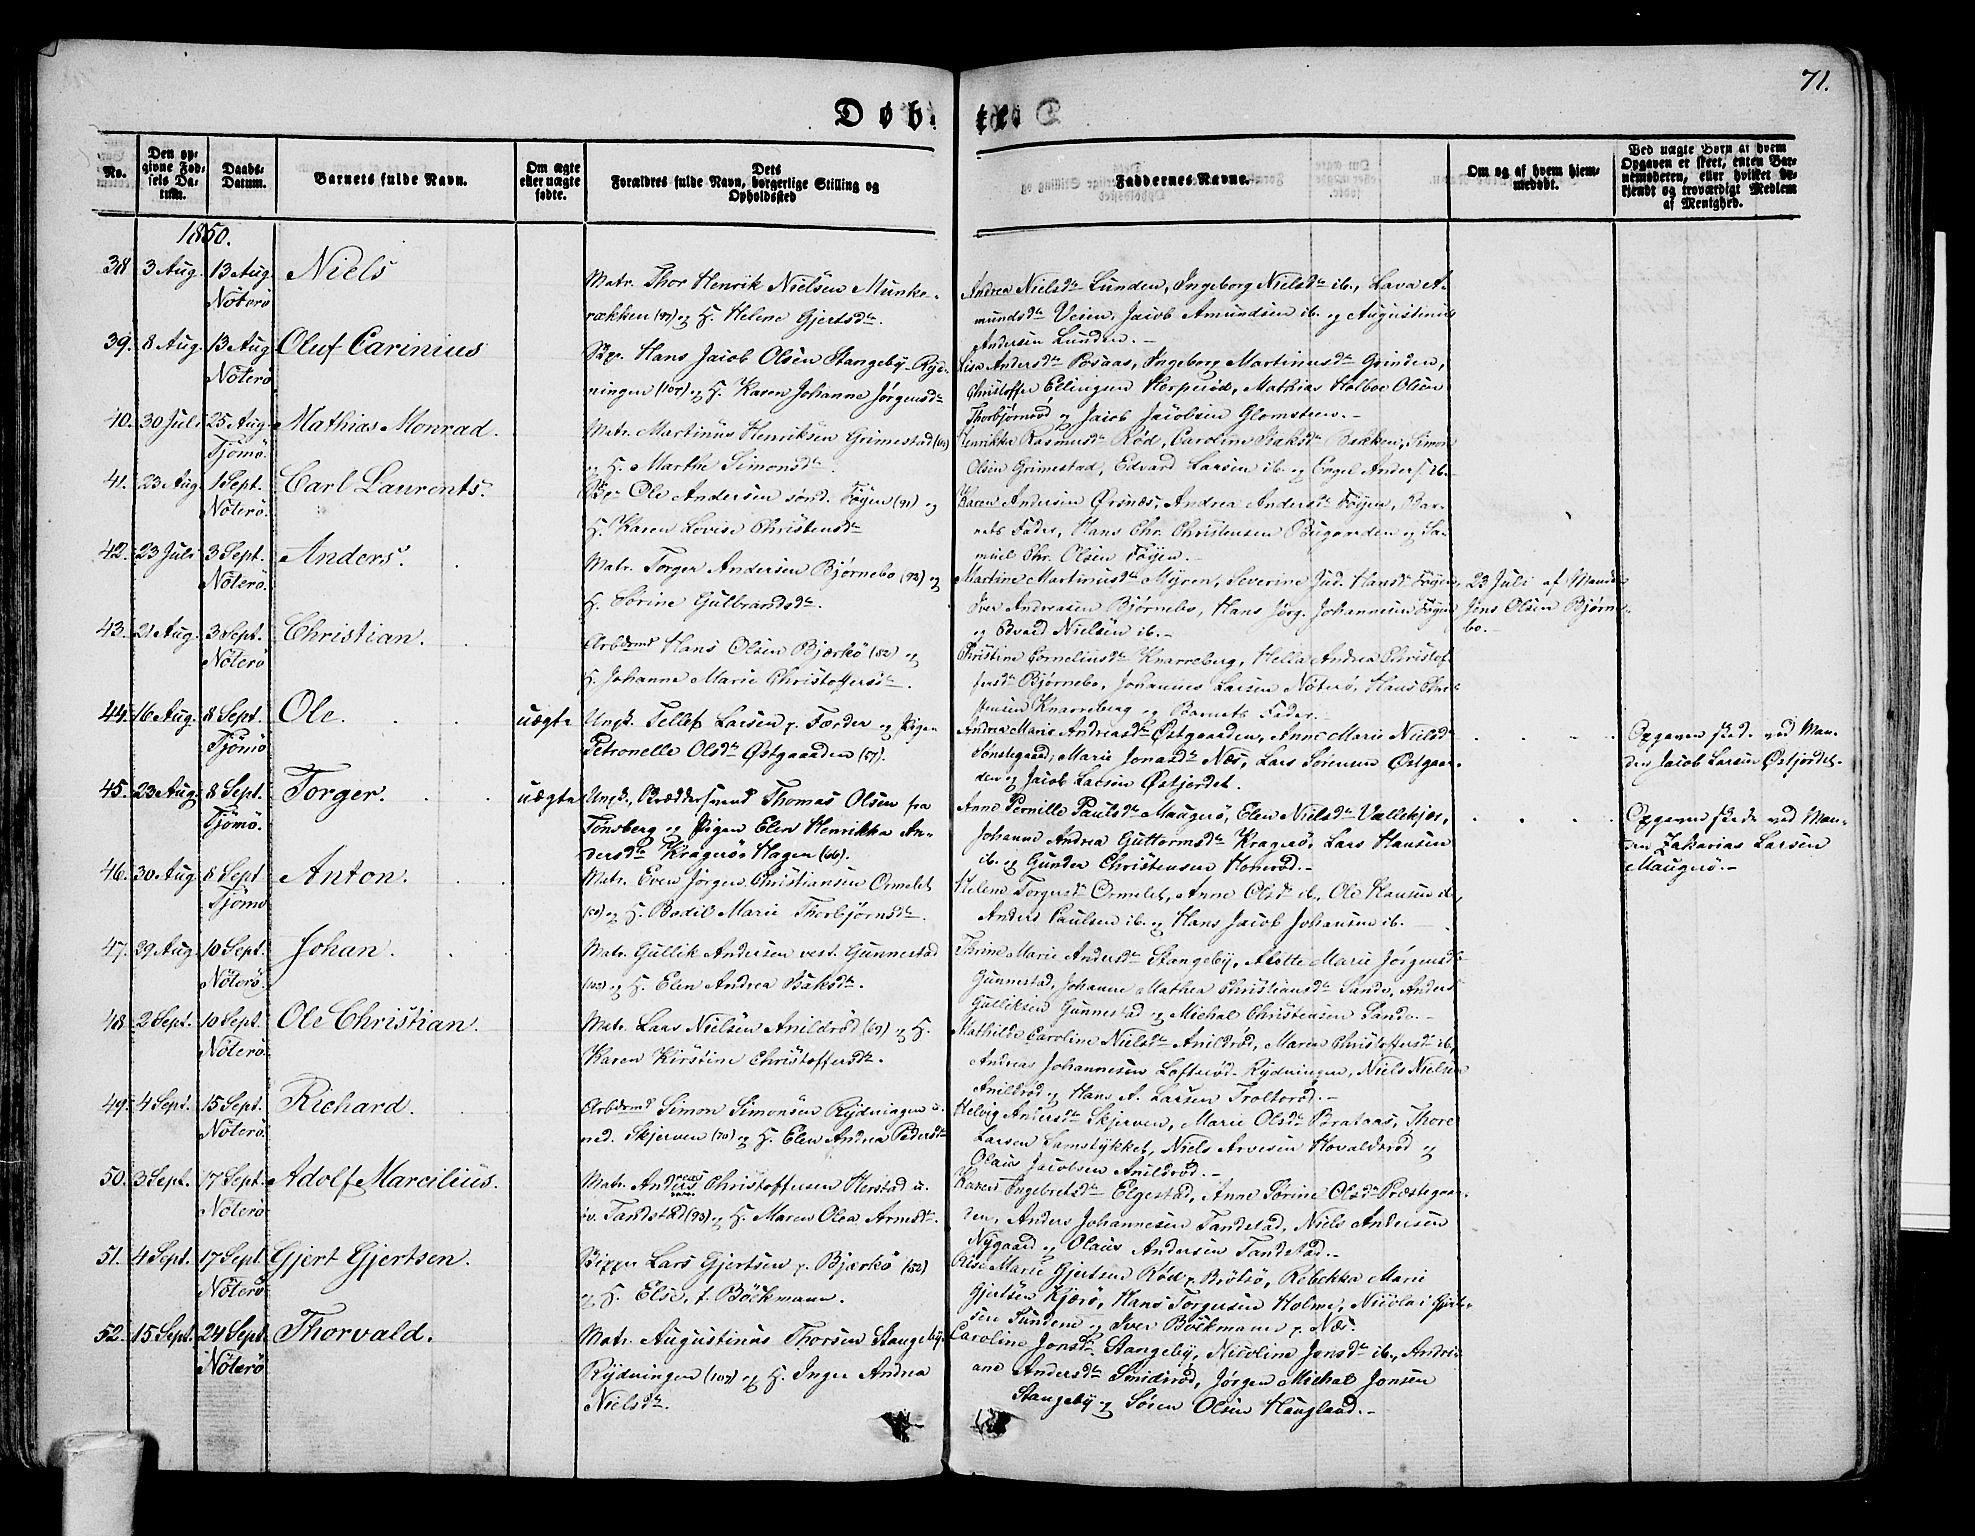 71.
Døbte
No.
Den opgivne Fødsels Datum.
Daabs-Datum.
Barnets fulde Navn.
Om ægte eller uægte født.
Dets Forældres fulde Navn, borgerlige Stilling og Opholdssted
Faddernes Navne.
Om og af hvem hjemmedøbt.
Ved uægte Børn at hvem Opgaven er skeet, enten Barnemoderen, eller hvilket bekjendt og troværdigt Medlem af Menighed.
1850.
38 3 Aug. 13 Aug. Nöterö Niels
Matr. Thor Henrik Nielsen Munke-
rækken (99) og H. Helene Gjertsdtr.
Andrea Nielsdtr Lunden, Ingeborg Nielsdtr ib., Lava A-
mundsdtr Veien, Jacob Amundsen ib. og Augustinus
Andersen Lunden.-
39. 8 Aug. 13 Aug Nöterö Oluf Carinius
Hans Jacob Olsen Stangeby-Ryd-
ningen (107) og H. Karen Johanne Jørgensdtr
Lisa Andersdtr Posaas, Ingeborg Martinusdtr Grinden,
Christoffer Ellingsen Herperød, Mathias Holboe Olsen
Thorbjørnrød og Jacob Jacobsen Glomsteen.-
40. 30 Juli 25 Aug. Tjömö. Mathias Monrad.
Matr. Martinus Henriksen Grimestad
og H. Marthe Simonsdtr.
Henrikka Rasmusdtr Rød, Caroline Isaksdtr Bakken, Simon
Olsen Grimestad, Edvard Larsen ib. og Engel Anders. ib.
41. 23 Aug. 1 Sept. Nöterö. Carl Laurents.
Ole Andersen sönd. Föyen (91) og
H. Karen Lovise Christensdtr
Karen Andersen Örsnæs, Andrea Andersdtr Föyen, Bar-
nets Fader, Hans Chr. Christensen Bugaarden og Sa-
muel Chr. Olsen Föyen.-
42. 23 Juli 3 Sept. Nöterö. Anders.
Matr. Torger Andersen Björnebo (92) og
H. Sörine Gulbrandsdtr.
Martine Martinusdtr Myren, Severine Jud. Hansdtr Föyen,
Iver Andreasen Björnebo, Hans Jörg. Johannesen Föyen
og Edvard Nielsen ib.-
23 Juli af Mand
Jens Olsen Björne-
bo.-
43. 21 Aug. 3 Sept. Nöterö Christian.
Arbdsmd Hans Olsen Bjerkö (82) og
H. Johanne Marie Christoffersdtr.
Christine Corneliusdtr Knarreberg, Hella Andrea Christof-
fersdtr Björnebo, Johannes Larsen Nöterö, Hans Chri-
stensen Knarreberg og Barnets Fader.-
44. 16 Aug. 8 Sept. Tjömö Ole.
uægte
Ungk. Tellef Larsen p. Færder og Pigen
Petronelle Olsdtr Östgaarden (57).
Andrea Marie Andreasdtr Östgaarden, Anne Marie Nielsdtr
Sönstegaard, Marie Jonasdtr Næs, Lars Sörensen Östgaar-
den og Jacob Larsen Östjordet.
Opgaven skede ved Man-
den Jacob Larsen Östjordet.
45. 23 Aug. 8 Sept. Tjömö. Torger.
uægte
Ungk., Thomas Olsen fra
Tönsberg og Pigen Elen Henrikka An-
dersdtr Kragerö Hagen (66).
Anne Pernille Paulsdtr Maugerö, Elen Nielsdtr Vallekjær,
Johanne Andrea Guttormsdtr Kragerö, Lars Hansen
ib. og Gunder Christensen Honeröd.-
Opgaven skede ved Man-
den Zakarias Larsen
Maugerö.-
46. 30 Aug. 8 Sept Tjömö Anton.
Matr. Even Jörgen Christiansen Ormelet
og H. Bodil Marie Thorbjörnsdtr.
Helene Torgersdtr Ormelet, Anne Olsdtr ib., Ole Hansen ib.,
Anders Paulsen ib. og Hans Jacob Johansen ib.
47. 29 Aug. 10 Sept. Nöterö. Johan.
Matr. Gullik Andersen vest. Gunnestad
(103) og H. Elen Andrea Isaksdtr.
Thrine Marie Andersdtr Stangeby, Alette Marie Jörgensdtr
Gunnestad, Johanne Mathea Christiansdtr Sande, Anders
Gulliksen Gunnestad og Michal Christensen Sande.-
48 2 Sept. 10 Sept. Nöterö. Ole Christian.
Matr. Lars Nielsen Anildröd (69) og H.
Karen Kirstine Christoffersdtr.
Mathilde Caroline Nielsdtr Anildröd, Maren Christoffersdtr ib.,
Andreas Johannesen Lofteröd-Rydningen, Niels Nielsen
Anildröd og Hans A. Larsen Trolteröd.-
49. 4 Sept. 15 Sept. Nöterö. Richard.
Arbdsmd Simon Simonsen Rydningen u.
ned. Skjerven (70) og H. Elen Andrea Pedersdtr
Helvig Andersdtr Skjerven, Marie Olsdtr Brataas, Thore
Larsen Samstykket, Niels Arvesen Hovaldsröd og
Olaus Jacobsen Anildröd.-
50. 3 Sept. 17 Sept. Nöterö. Adolf Marcilius.
Matr. Andreas Christoffersen Herstad u.
öv. Tandstad (93) og H. Maren Olea Arnsdtr.
Karen Ingebretsdtr Elgestad, Anne Sörine Olsdtr Præstegaar-
den, Anders Johannesen Tandstad, Niels Andersen
Nygaard og Olaus Andersen Tandstad.-
51. 4 Sept. 17 Sept. Nöterö Gjert Gjertsen.
Lars Gjertsen p. Bjærkö (82)
og H. Else, f. Böckmann.
Marie Gjertsen Röd p. Brötsö, Rebekka Marie
Gjertsen Kjærö, Hans Torgersen Holme, Nicolai Gjert-
sen Sundene og Iver Böckmann p. Næs.
52. 15 Sept. 24 Sept. Nöterö Thorvald.
Matr. Augustinus Thorsen Stangeby-
Rydningen (107) og H. Inger Andrea
Nielsdtr.
Caroline Jonsdtr Stangeby, Nicoline Jonsdtr ib., Andri-
ane Andersdtr Smidsröd, Jörgen Michal Jonsen
Stangeby og Sören Olsen Haugland.-